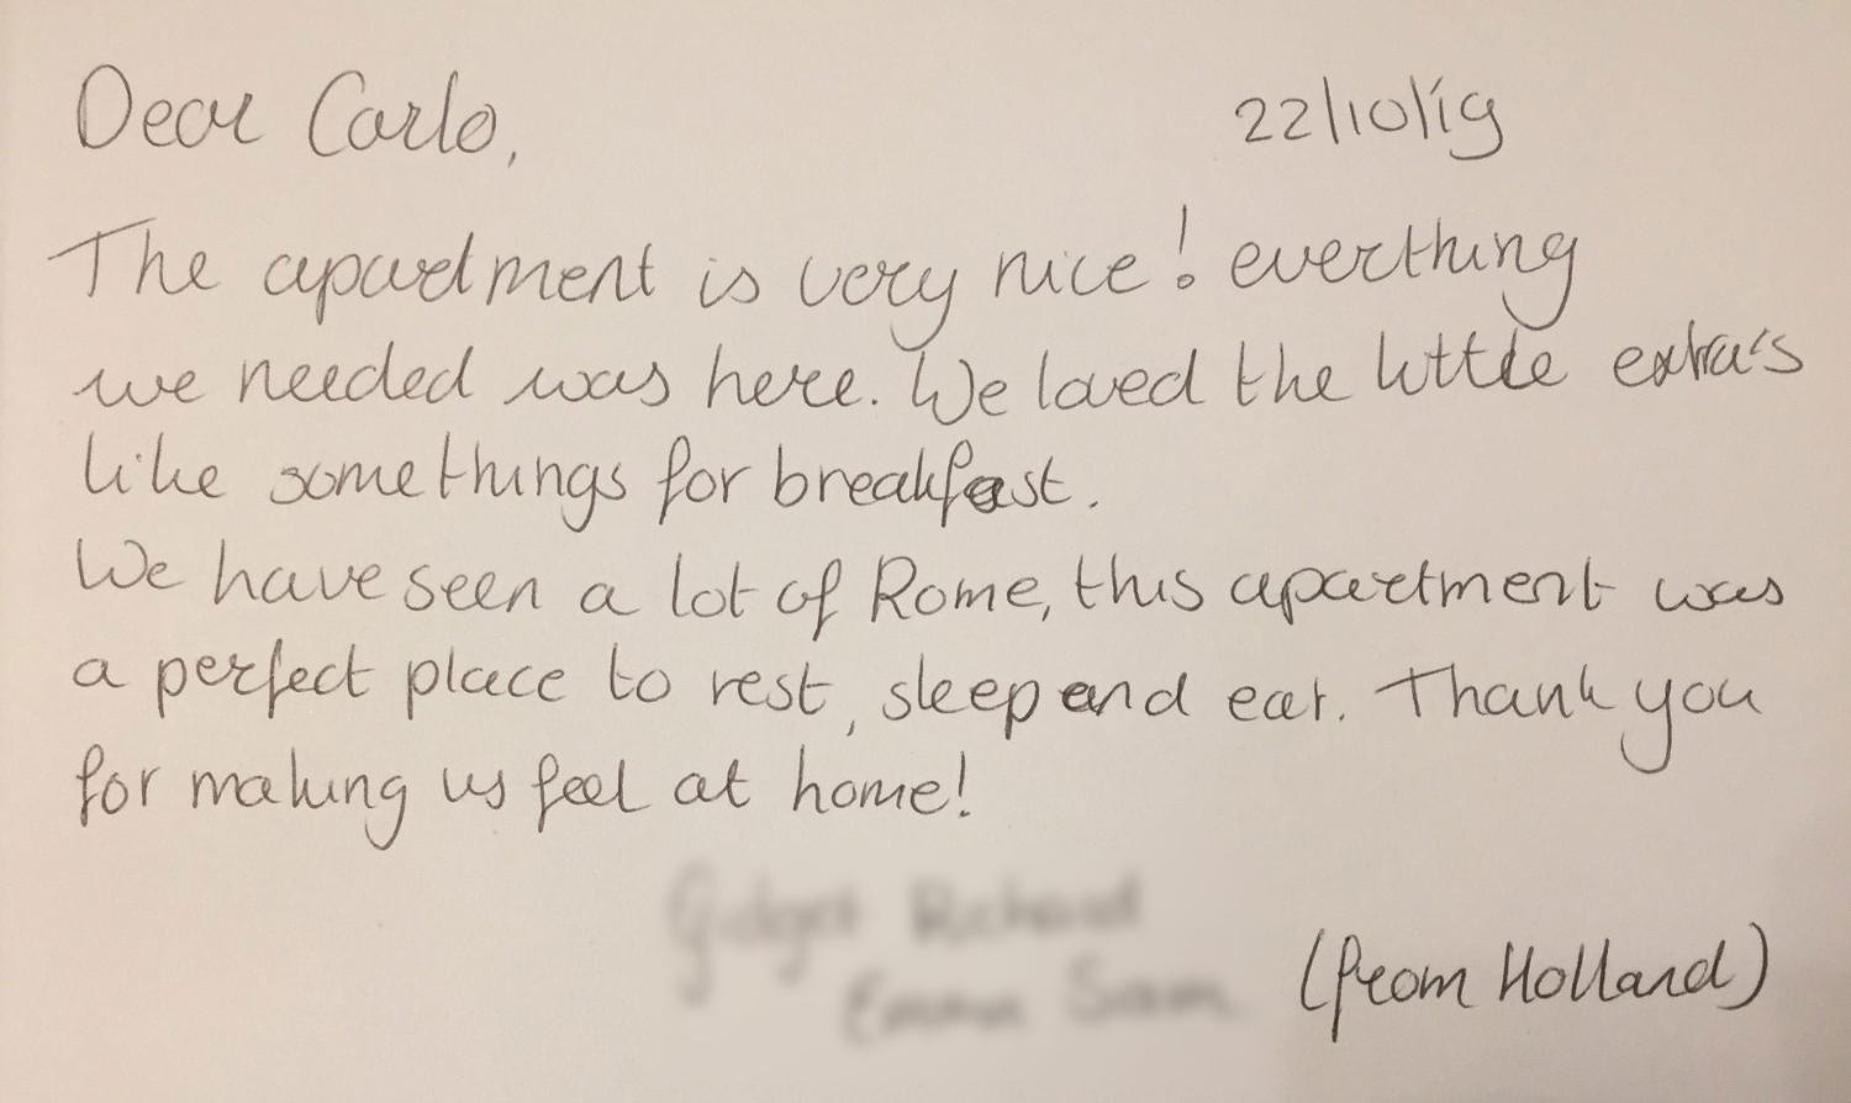 Dear Carlo,
22/10/19
The apartment is very nice! everthing
we needed was here. We loved the little extra's
like somethings for breakfast.
We have seen a lot of Rome, this apartment was
a perfect place to rest, sleep and eat. Thank you
for making us feel at home!
(from Holland)